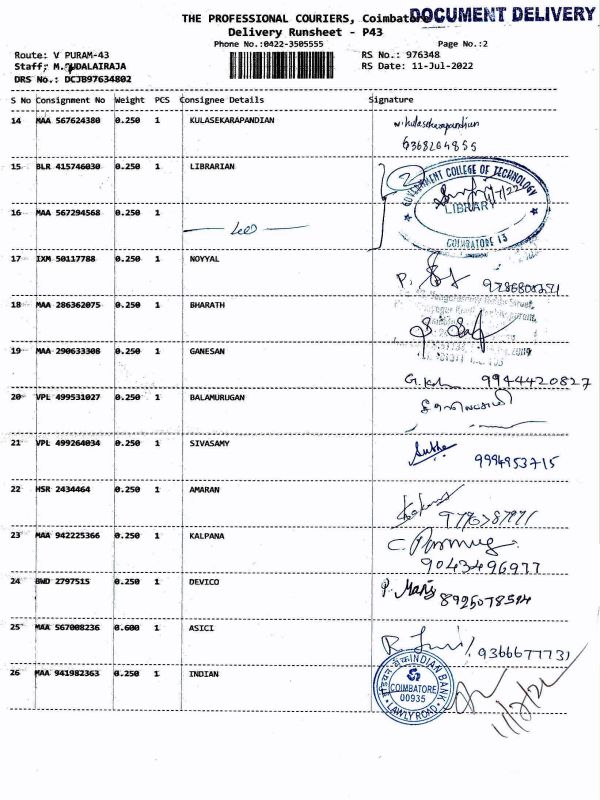 THE PROFESSIONAL COURIERS, Coimbatore DOCUMENT DELIVERY
Delivery Runsheet - P43
Phone No.:0422-3505555 Page No.:2
Route: V PURAM-43 RS No.: 976348
Staff: M.SUDALAIRAJA RS Date: 11-Jul-2022
DRS No.: DCJB97634802
S No Consignment No Weight PCS Consignee Details Signature
14 MAA 567624380 0.250 1 KULASEKARAPANDIAN N. kulasekarapandian
6368264855
15 BLR 415746030 0.250 1 LIBRARIAN 2 GOVERNMENT COLLEGE OF TECHNOLOGY
LIBRARY
16 MAA 567294568 0.250 1
COIMBATORE 13
17 IXM 50117788 0.250 1 NOYYAL P.
18 MAA 286362075 0.250 1 BHARATH
19 MAA 290633308 0.250 1 GANESAN
9944420827
20 VPL 499531027 0.250 1 BALAMURUGAN
21 VPL 499264034 0.250 1 SIVASAMY
9994953715
22 HSR 2434464 0.250 1 AMARAN
23 MAA 942225366 0.250 1 KALPANA
9043496977
24 BWD 2797515 0.250 1 DEVICO P. Maris 8925078514
25 MAA 567008236 0.600 1 ASICI R. 9366677731
26 MAA 941982363 0.250 1 INDIAN इंडियन बैंक INDIAN BANK
COIMBATORE
00935
LAWLY ROAD
11/7/22